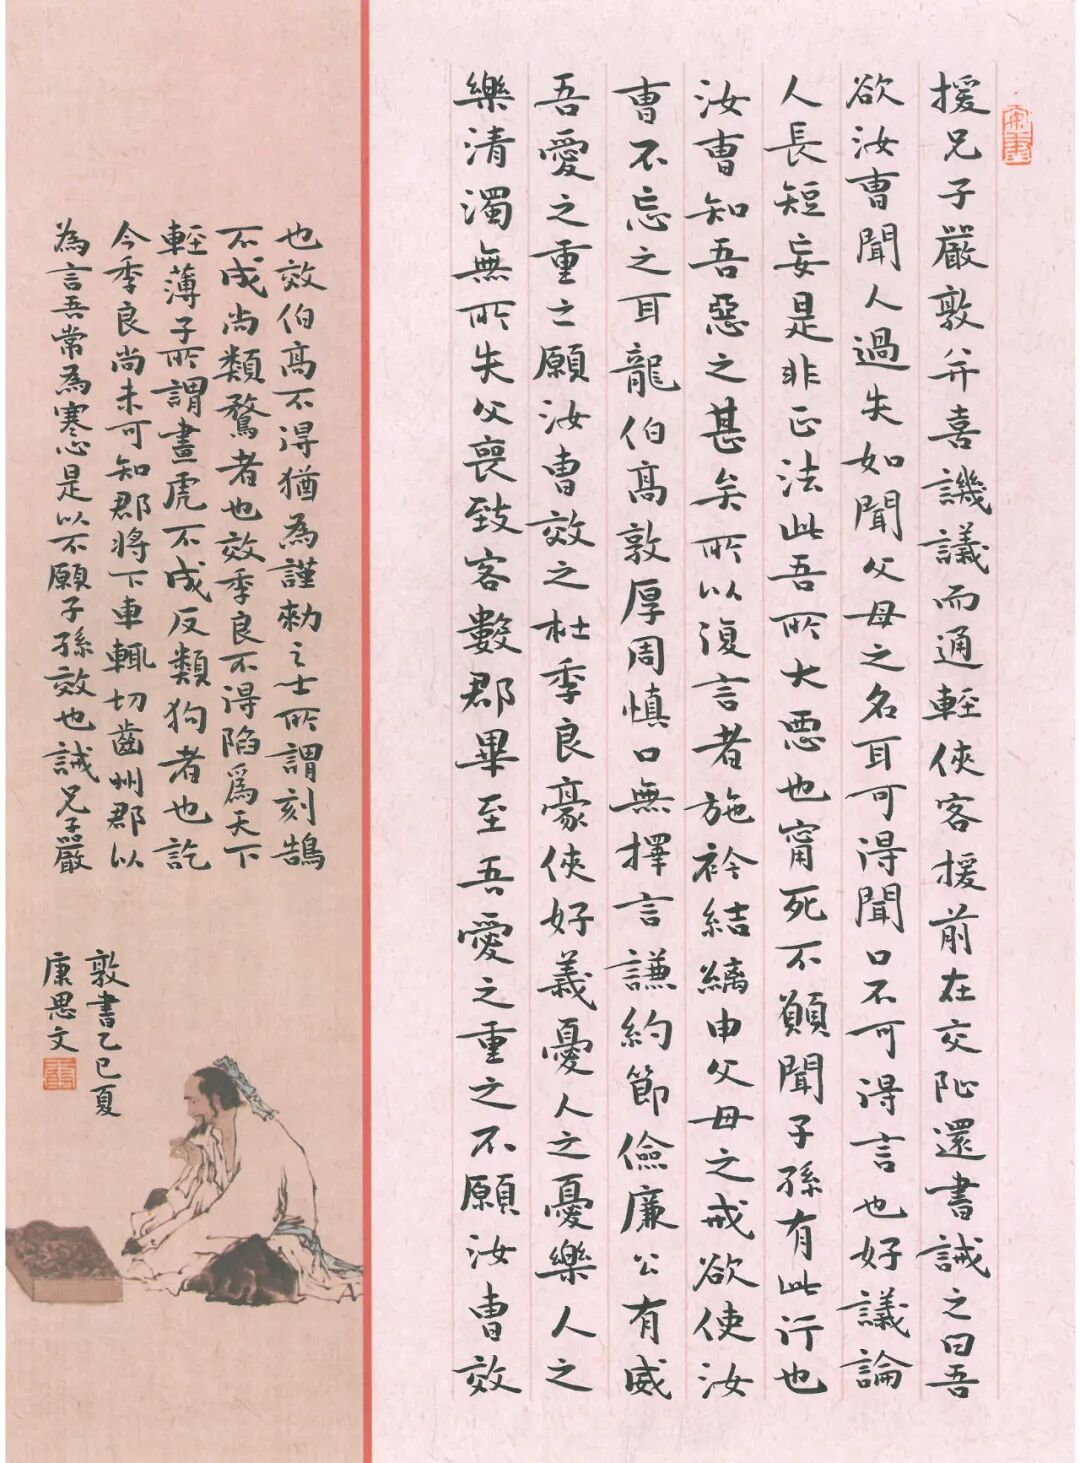 援兄子嚴敦并喜譏議而通輕俠客援前在交阯還書誡之曰吾
欲汝曹聞人過失如聞父母之名耳可得聞口不可得言也好議論
人長短妄是非正法此吾所大悪也甯死不願聞子孫有此行也
汝曹知吾惡之甚矣所以復言者施衿結縭申父母之戒欲使汝
曹不忘之耳龍伯高敦厚周慎口無擇言謙約節儉廉公有威
吾愛之重之願汝曹效之杜季良豪俠好義憂人之憂樂人之
樂清濁無所失父喪致客數郡畢至吾愛之重之不願汝曹效
也效伯高不得猶為謹勑之士所謂刻鵠
不成尚類鶩者也效季良不得陷爲天下
輕薄子所謂畫虎不成反類狗者也訖
今季良尚未可知郡將下車輒切齒州郡以
為言吾常為寒心是以不願子孫效也誡兄子嚴
敦書乙巳夏
康思文